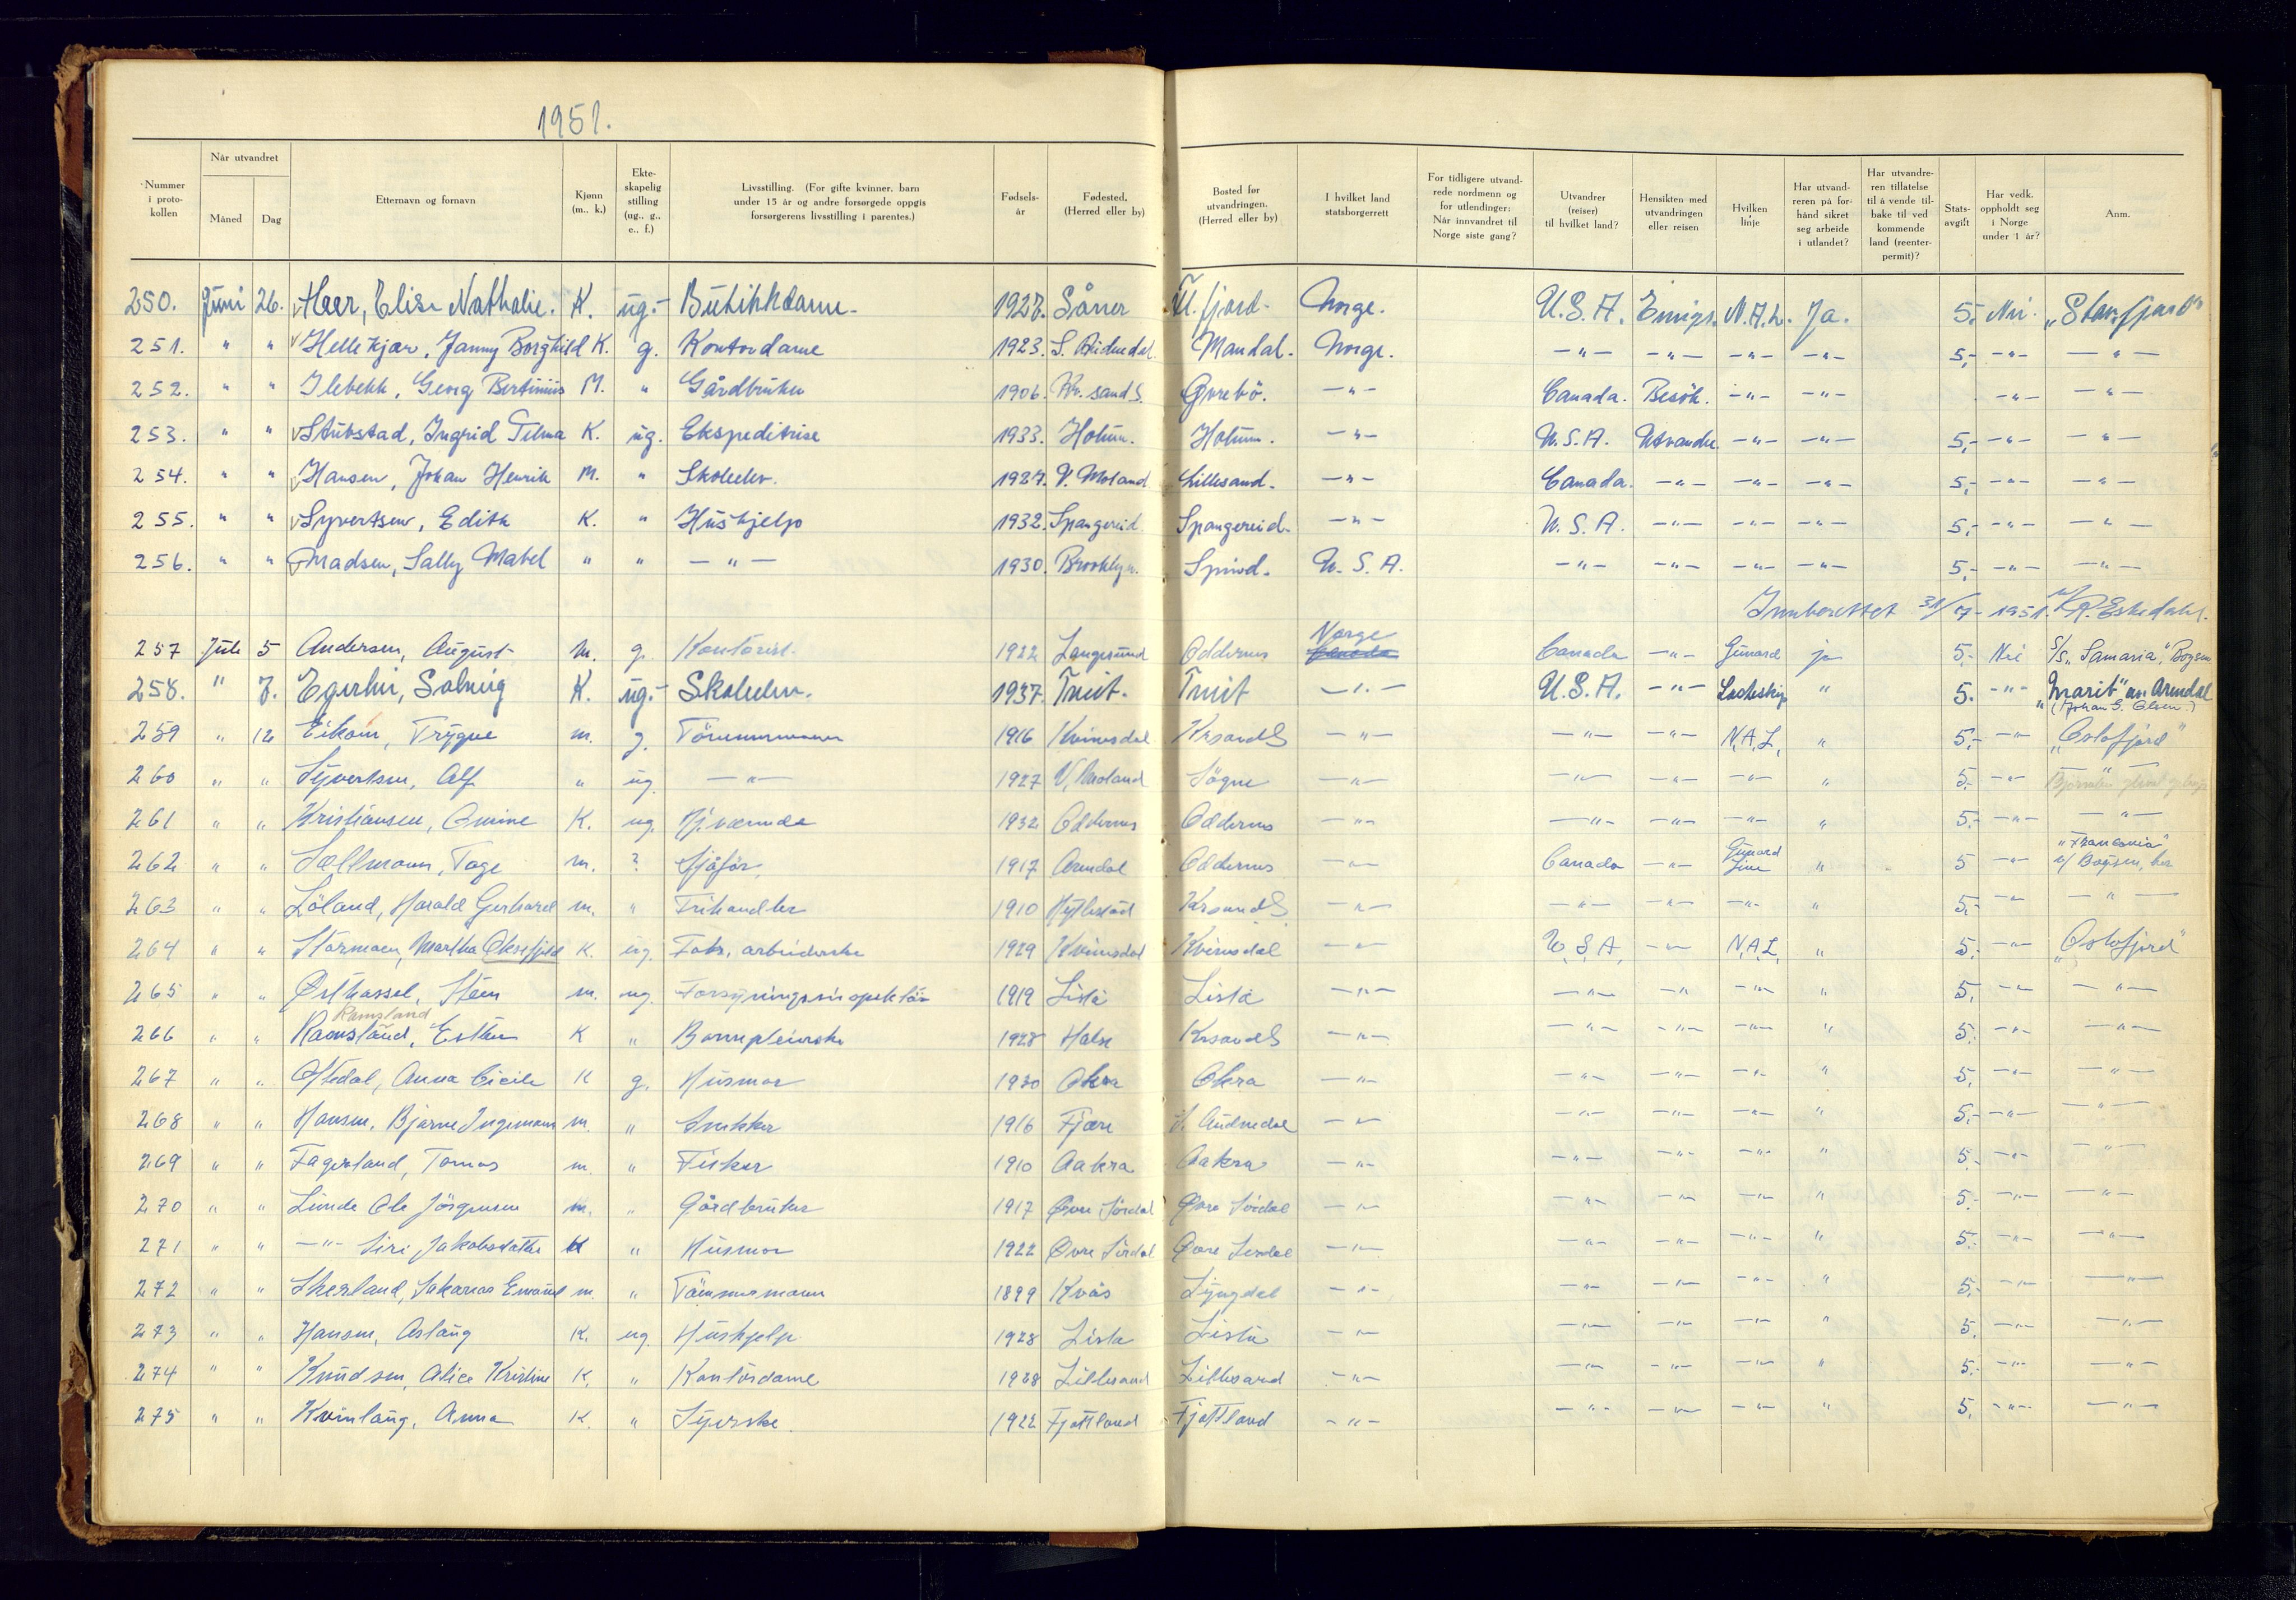 1951.
Nummer i protokollen | Når utvandret Måned | Dag | Etternavn og fornavn | Kjønn (m., k.) | Ekteskapelig stilling (ug., g., e., f.) | Livsstilling. (For gifte kvinner, barn under 15 år og andre forsørgede oppgis forsørgerens livsstilling i parentes.) | Fødselsår | Fødested. (Herred eller by) | Bosted før utvandringen. (Herred eller by) | I hvilket land statsborgerrett | For tidligere utvandrede nordmenn og for utlendinger: Når innvandret til Norge siste gang? | Utvandrer (reiser) til hvilket land? | Hensikten med utvandringen eller reisen | Hvilken linje | Har utvandreren på forhånd sikret seg arbeide i utlandet? | Har utvandreren tillatelse til å vende tilbake til vedkommende land (reenterpermit)? | Statsavgift | Har vedk. oppholdt seg i Norge under 1 år? | Anm.
250. Juni 26. Elise Nathalie. K. ug.- Butikkdame. 1927. Norge. U.S.A. Emigr. N.A.L. Ja. 5.- Nei. „Stavfjord"
251. " " Hellekjær, Janny Borghild K. g. Kontordame 1923. S. Audnedal Mandal. Norge. -"- -"- -"- -"- 5,- -"- -"-
252. " " Ilebekk, Georg Bertinius M. " Gårdbruker 1906. Kr.sand S. Øvrebö. -"- Canada. Besök. -"- -"- -"- -"-
253. " " Stubstad, Ingrid Telma K. ug. Ekspeditrise 1933. Holum. Holum. -"- U.S.A. Utvandre -"- -"- 5,- -"- -"-
254. " " Hansen, Johan Henrik M. " Skoleelev. 1927. V. Moland Lillesand. -"- Canada. -"- -"- -"- 5,- -"- -"-
255. " " Syvertsen, Edith K. " Hushjelp 1932. Spangereid Spangereid. -"- U.S.A. -"- -"- -"- 5,- -"- -"-
256. " " Madsen, Sally Mabel " " -"- 1930. Brooklyn. Spind. U.S.A. -"- -"- -"- -"- 5,- -"- -"-
Innberettet 31/7-1951. R. Eskedahl.
257 Juli 5 Andersen, August m. g. Kontorist. 1922 Langesund Oddernes Norge Canada -"- Cunard ja 5.- Nei S/s „Samaria", Boysen
258. " 7. Solveig K. ug.- Skoleelev. 1937. Treit. Treit -"- U.S.A. -"- Lasteskip " 5. -"- „Marit" av Arendal
(Johan G. Olsen.)
259 " 12 Trygve m. g. Tömmermann 1916 Kvinesdal Krsand S -"- -"- -"- N.A.L. " 5.- -"- „Oslofjord"
260 " " Syvertsen, Alf " ug -"- 1927 V. Moland Sögne -"- -"- -"- -"- " 5.- -"- -"-
261 " " Kristiansen, K. ug. Hj.værende 1932 Oddernes Oddernes -"- -"- -"- -"- " 5.- -"- -"-
262 " " Tage m. ? Sjåför, 1917 Arendal Oddernes -"- Canada -"- Cunard Line " 5 -"- „Franconia" v/ Boysen, her
263 " " Löland, Harald Gerhard m. " Frihandler 1910 Hyllestad Krsand S -"- -"- -"- -"- " 5.- -"- -"-
264 " " Störmoen, Martha Oksefjeld K. ug. Fabr. arbeiderske 1929 Kvinesdal Kvinesdal -"- U.S.A, -"- N.A.L, " 5.- -"- „Oslofjord"
265 " " Østhassel, Stein m. ug. Forsyningsinspektör 1919 Lista Lista -"- -"- -"- -"- " 5. -"- -"-
Ramsland
266 " " Ramsland, Esther K " Barnepleierske 1928 Halse Krsand S -"- -"- -"- -"- " 5. -"- -"-
267 " " Oftedal, Anna Cicilie K g. Husmor 1930 Åkra Åkra -"- -"- -"- -"- " 5. -"- -"-
268 " " Hansen, Bjarne Ingemann m. " Snekker 1916 Fjære S. Audnedal -"- -"- -"- -"- " 5.- -"- -"-
269 " " Fagerland, Tomas m. " Fisker 1910 Aakra Aakra -"- -"- -"- -"- " 5.- -"- -"-
270 " " Lunde Ole Jörgensen m. " Gårdbruker 1917 Øvre Sirdal Øvre Sirdal -"- -"- -"- -"- " 5.- -"- -"-
271 " " -"- Siri Jakobsdatter K " Husmor 1922 Øvre Sirdal Øvre Sirdal -"- -"- -"- -"- " 5.- -"- -"-
272 " " Sakarias Emanuel m. " Tömmermann 1899 Kvås Lyngdal -"- -"- -"- -"- " 5.- -"- -"-
273 " " Hansen, Aslaug K. ug Hushjelp 1928 Lista Lista -"- -"- -"- -"- " 5. -"- -"-
274 " " Knudsen, Alice Kristine K. " Kontordame 1928 Lillesand Lillesand -"- -"- -"- -"- " 5.- -"- -"-
275 " " Kvinlaug, Anna K. " Syerske. 1922 Fjotland Fjotland -"- -"- -"- -"- " 5. -"- -"-